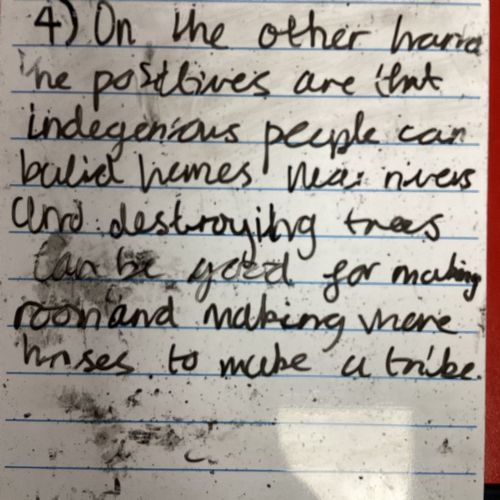 4) On the other hand
he positives are that
indegenious people can
bulid homes near rivers
and destroying trees
can be good for making
room and making more
houses to make a tribe.